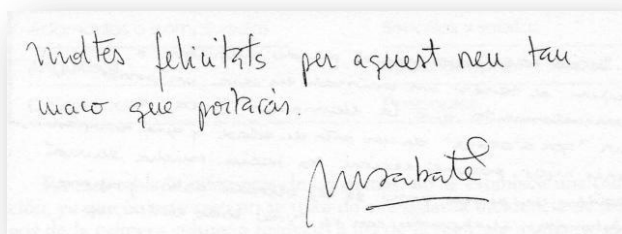 moltes felicitats per aquest neu tan
maco que portaràs.
Msabaté